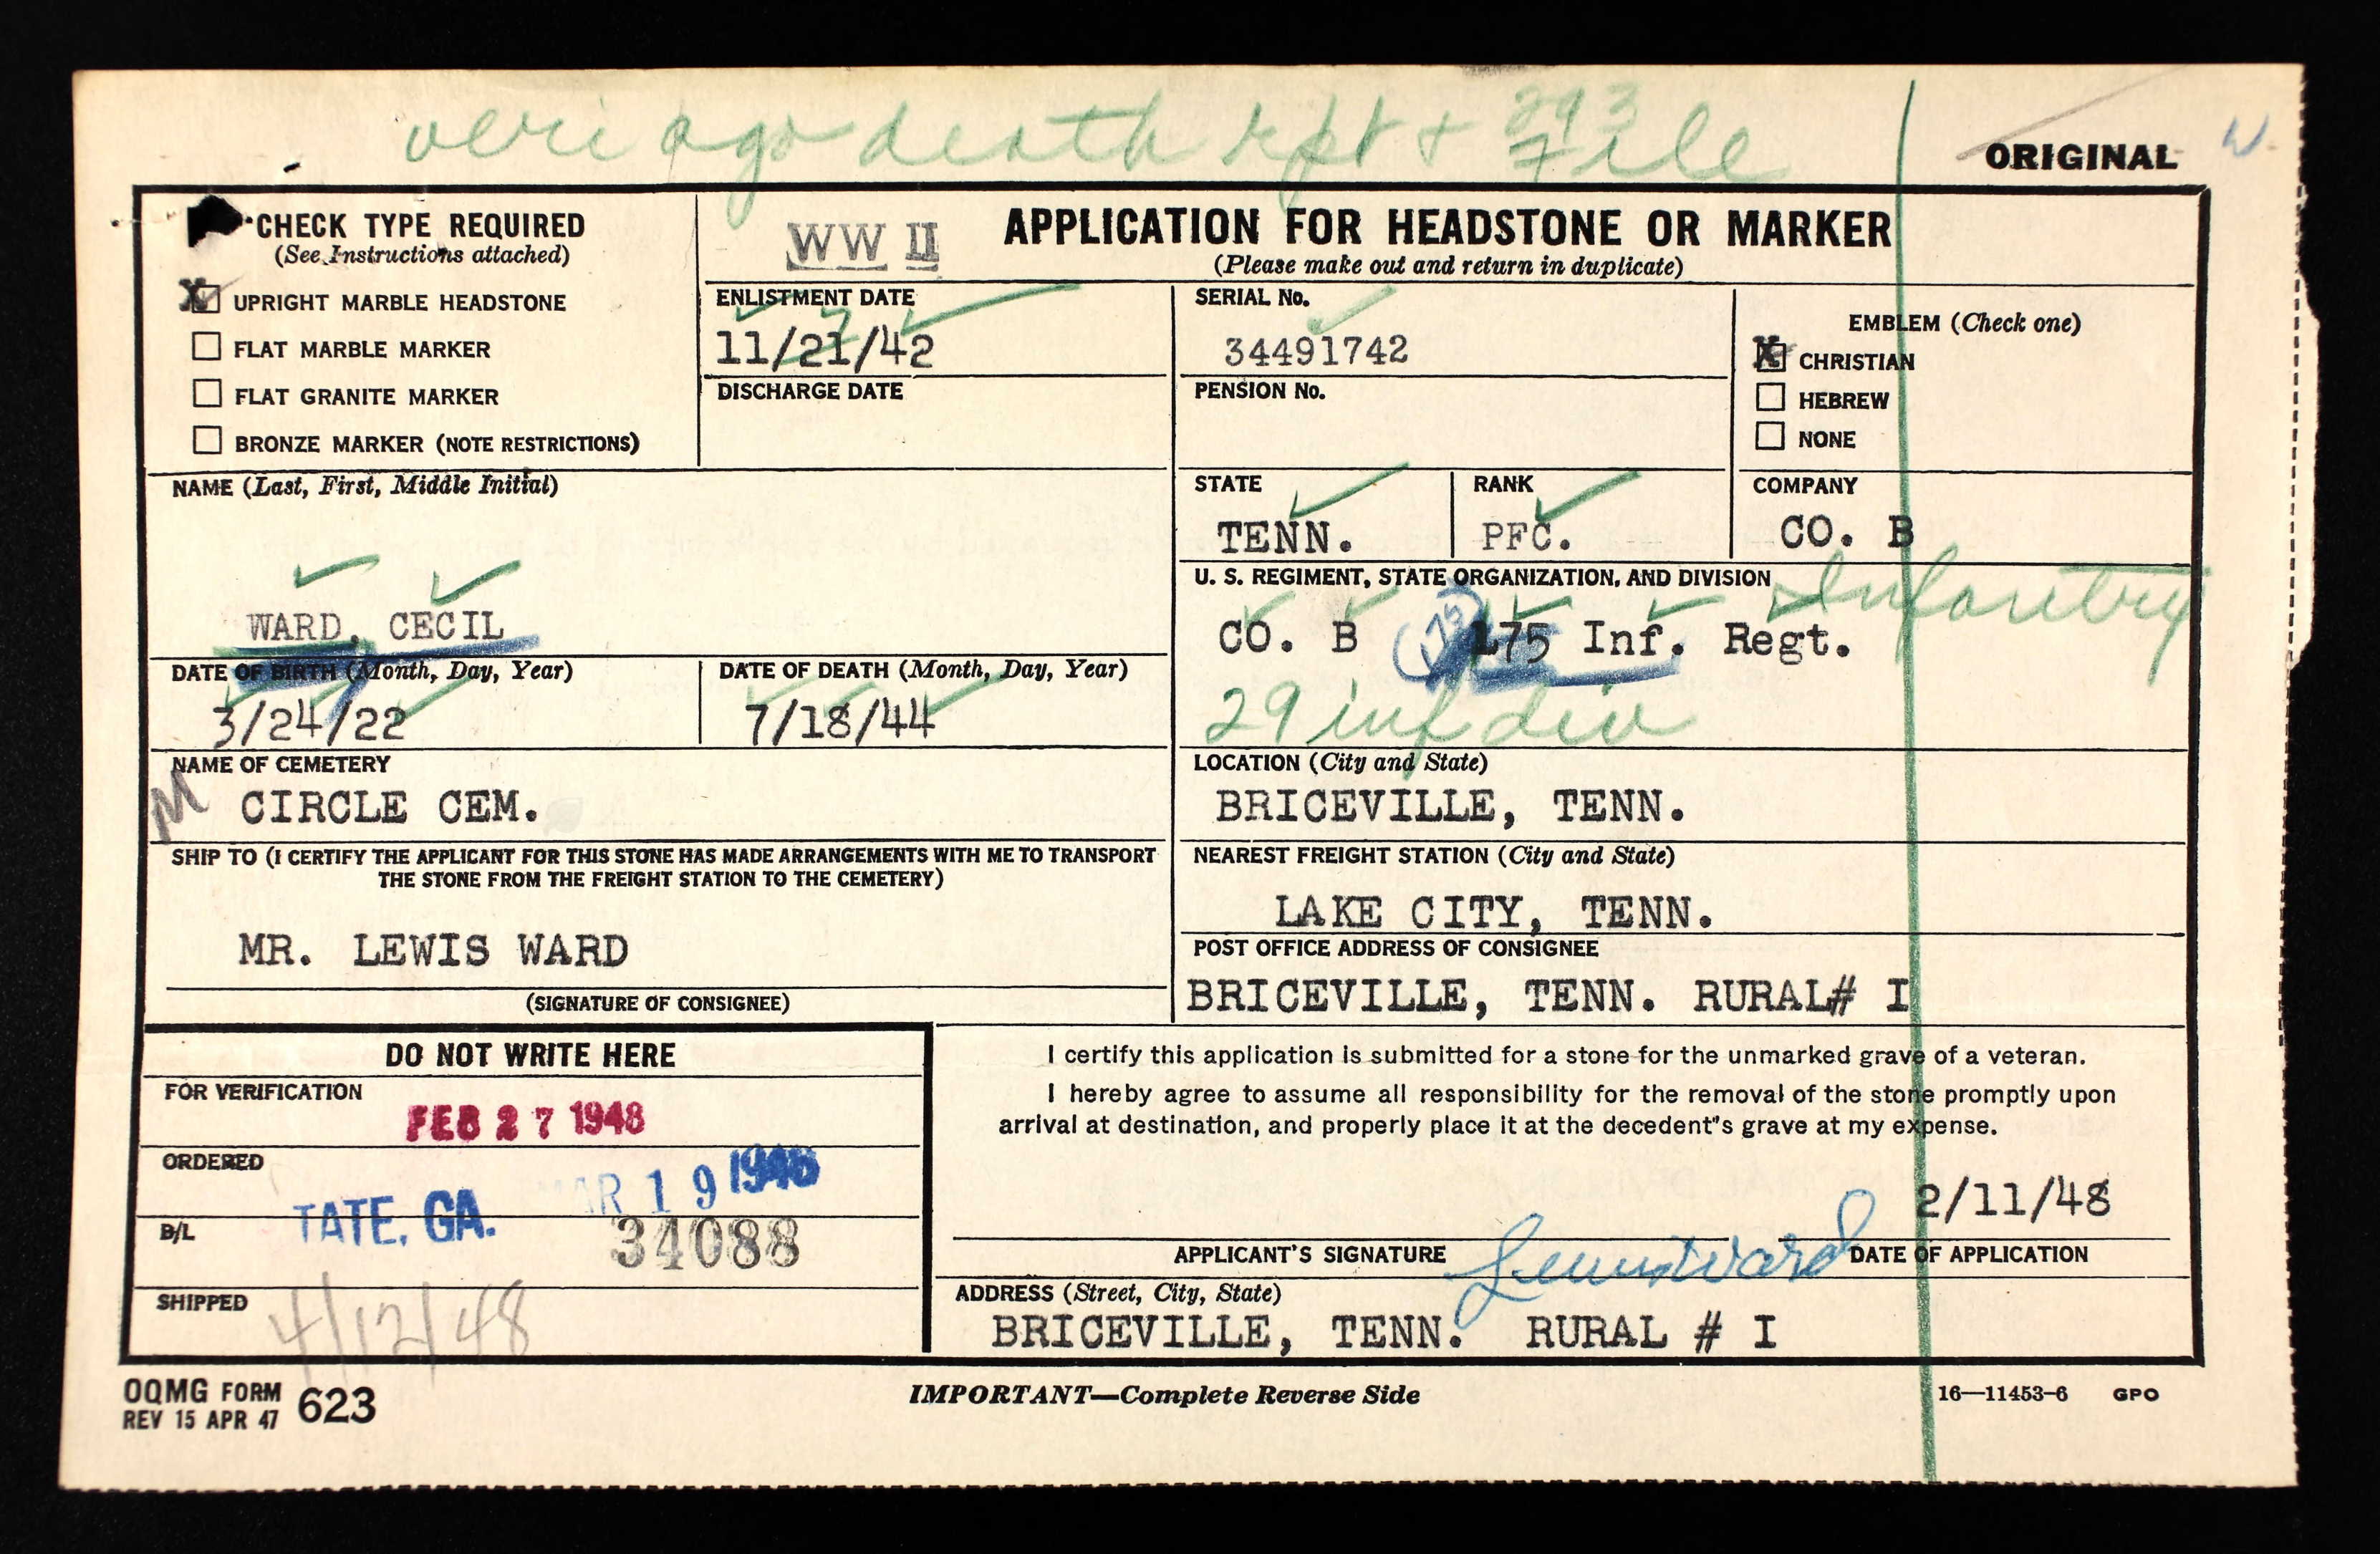 veri ago death rpt + 293 File
ORIGINAL W.
CHECK TYPE REQUIRED
(See Instructions attached)
X UPRIGHT MARBLE HEADSTONE
FLAT MARBLE MARKER
FLAT GRANITE MARKER
BRONZE MARKER (NOTE RESTRICTIONS)
WW II
APPLICATION FOR HEADSTONE OR MARKER
(Please make out and return in duplicate)
ENLISTMENT DATE
11/21/42
DISCHARGE DATE
SERIAL No.
34491742
PENSION No.
EMBLEM (Check one)
X CHRISTIAN
HEBREW
NONE
NAME (Last, First, Middle Initial)
WARD, CECIL
STATE
TENN.
RANK
PFC.
COMPANY
CO. B
U. S. REGIMENT, STATE ORGANIZATION, AND DIVISION
Infantry
CO. B (175) 175 Inf. Regt.
29 inf div
DATE OF BIRTH (Month, Day, Year)
3/24/22
DATE OF DEATH (Month, Day, Year)
7/18/44
NAME OF CEMETERY
M CIRCLE CEM.
LOCATION (City and State)
BRICEVILLE, TENN.
SHIP TO (I CERTIFY THE APPLICANT FOR THIS STONE HAS MADE ARRANGEMENTS WITH ME TO TRANSPORT
THE STONE FROM THE FREIGHT STATION TO THE CEMETERY)
MR. LEWIS WARD
(SIGNATURE OF CONSIGNEE)
NEAREST FREIGHT STATION (City and State)
LAKE CITY, TENN.
POST OFFICE ADDRESS OF CONSIGNEE
BRICEVILLE, TENN. RURAL# I
DO NOT WRITE HERE
FOR VERIFICATION
FEB 27 1948
ORDERED
MAR 19 1948
TATE, GA.
B/L
34088
SHIPPED
4/12/48
I certify this application is submitted for a stone for the unmarked grave of a veteran.
I hereby agree to assume all responsibility for the removal of the stone promptly upon
arrival at destination, and properly place it at the decedent"s grave at my expense.
2/11/48
APPLICANT'S SIGNATURE Lewis Ward DATE OF APPLICATION
ADDRESS (Street, City, State)
BRICEVILLE, TENN. RURAL # I
OQMG FORM 623
REV 15 APR 47
IMPORTANT—Complete Reverse Side
16—11453-6 GPO